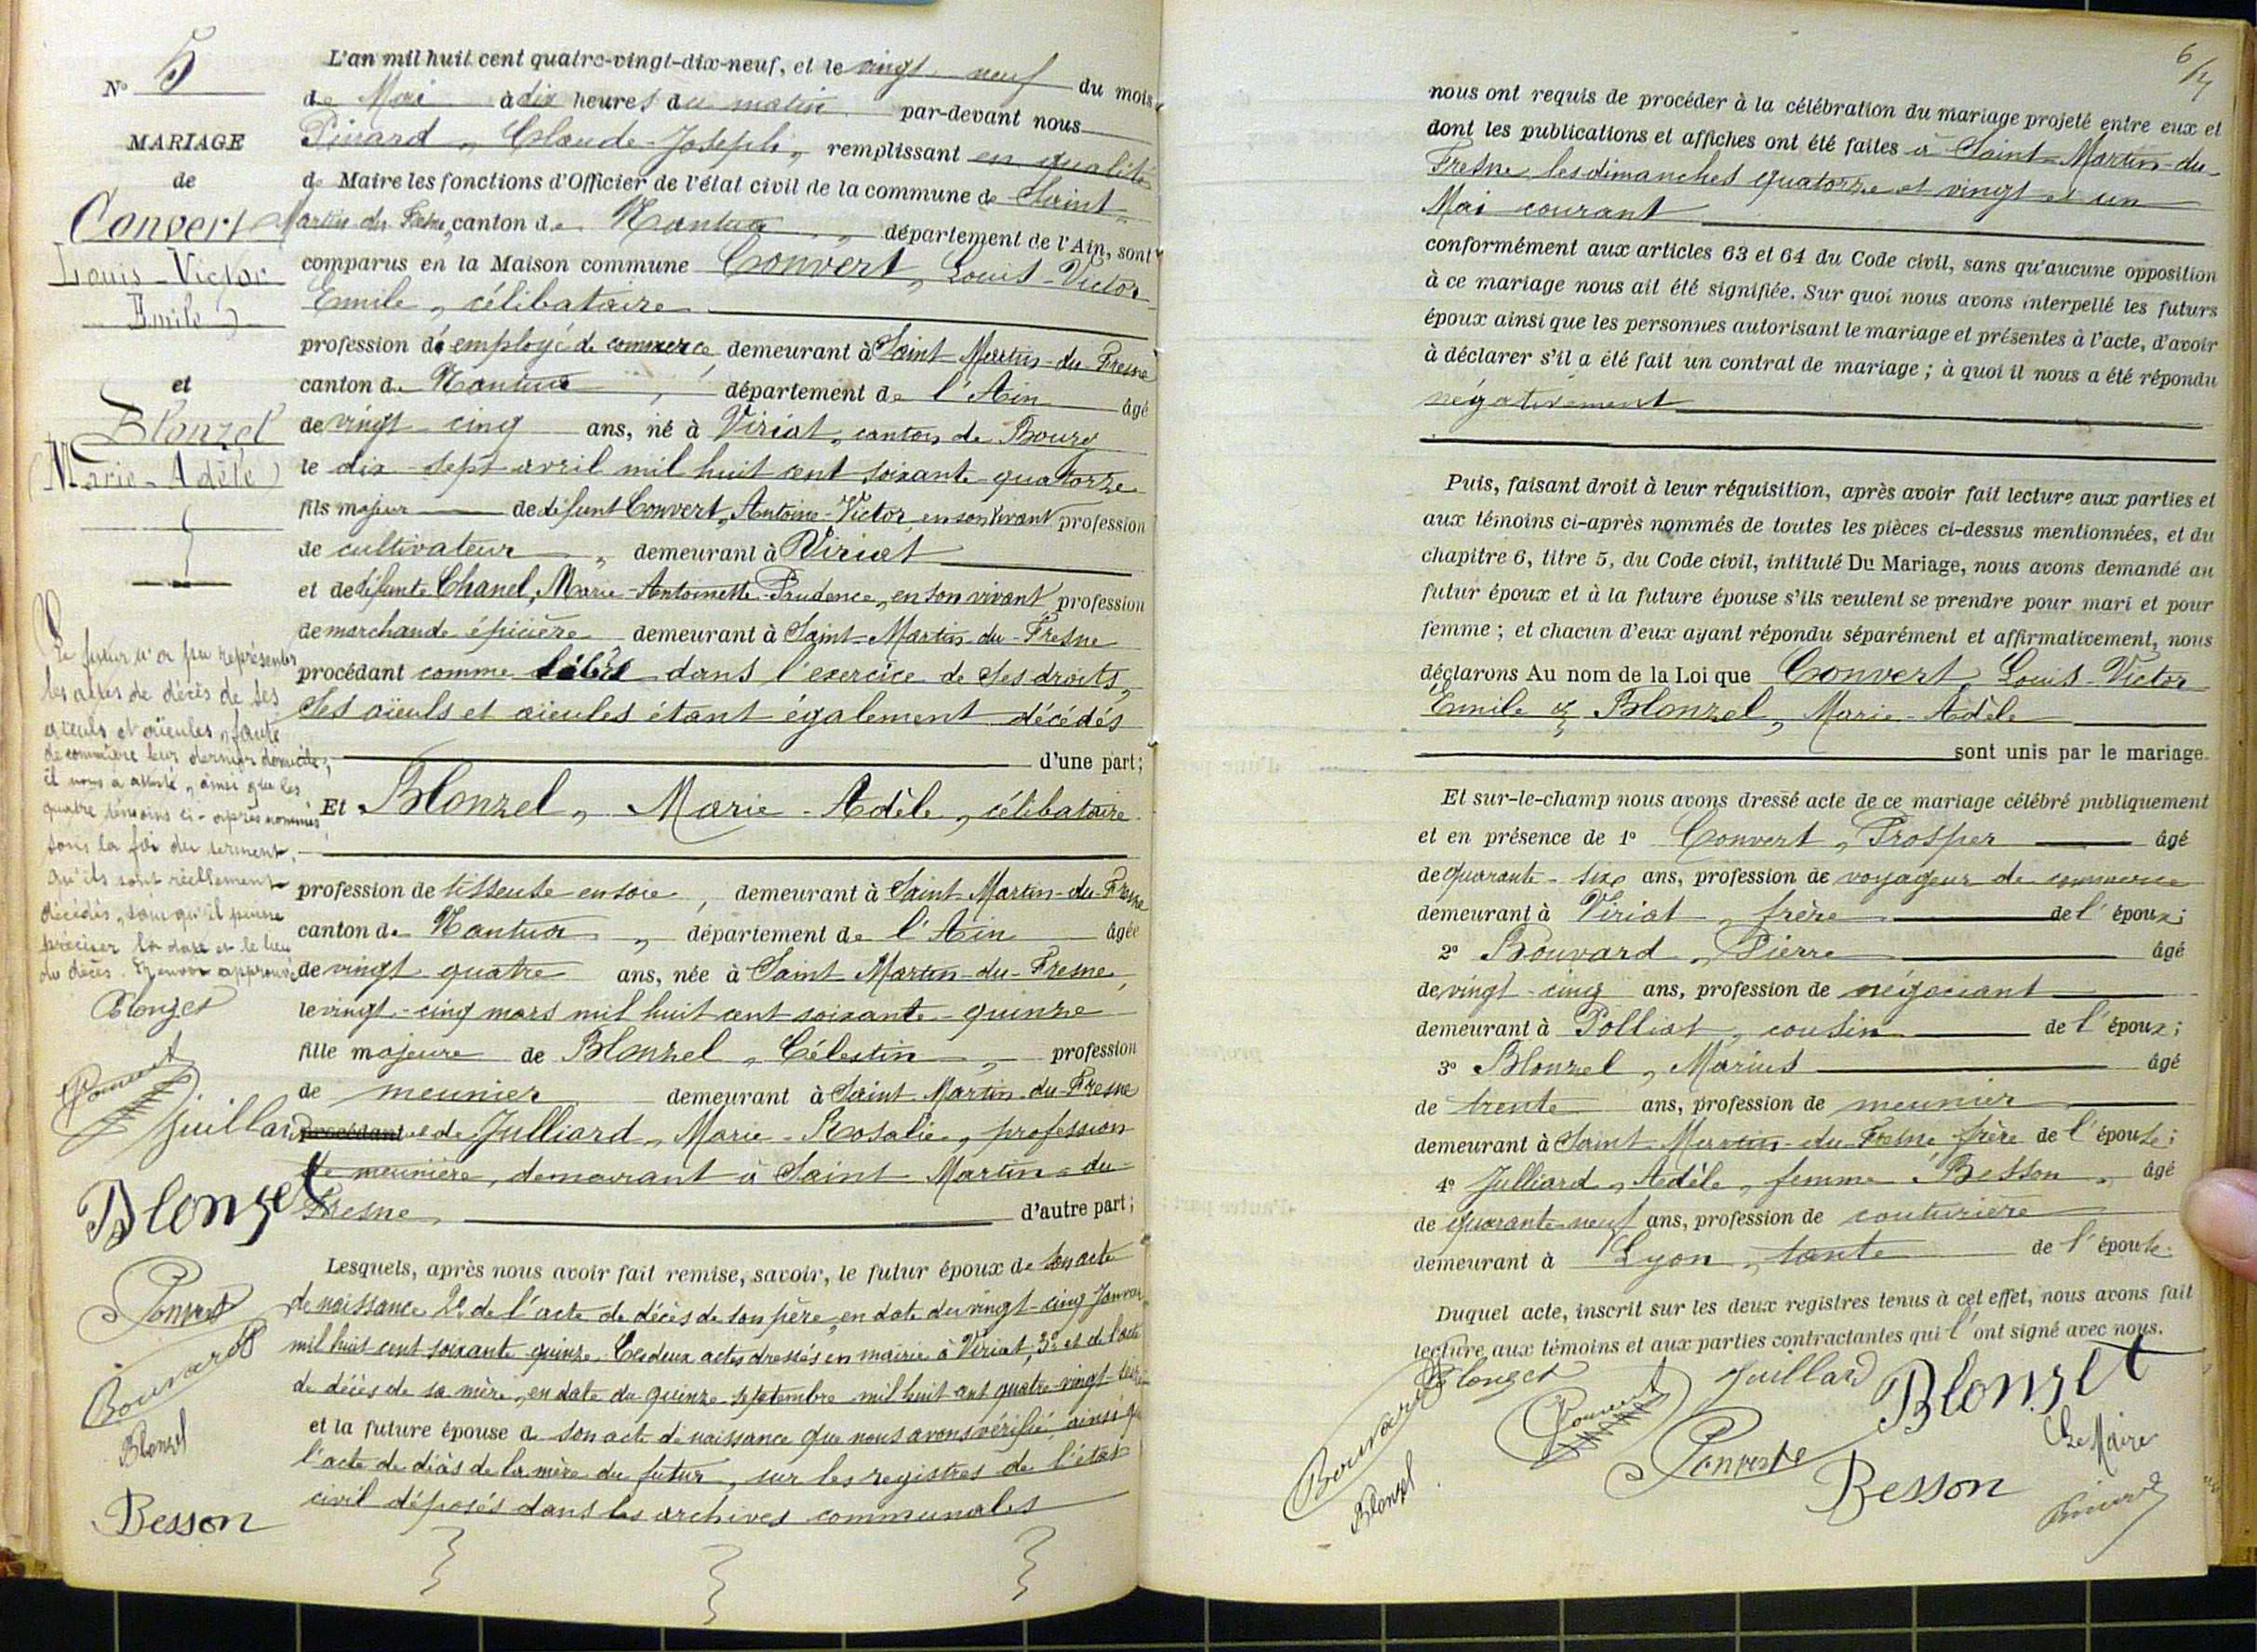 N° 5
MARIAGE
de
Convert
Louis-Victor
Emile
et
Blonzel
(Marie-Adèle)
Le futur n'a pu représenter
les actes de décès de ses
aïeuls et aïeules, faute
de connaître leur dernier domicile,
il nous a attesté, ainsi que les
quatre témoins ci-après nommés
sous la foi du serment,
qu'ils sont réellement
décédés, sans qu'il puisse
préciser la date et le lieu
du décès. Renvoi approuvé
Blonzel
Convert
Juillard
Blonzel
Convert
Bouvard
Blonzel
Besson
L'an mil huit cent quatre-vingt-dix-neuf, et le vingt-neuf du mois
de Mai à dix heures du matin par-devant nous
Pinard, Claude-Joseph, remplissant en qualité
de Maire les fonctions d'Officier de l'état civil de la commune de Saint-
Martin du Fresne, canton de Nantua, département de l'Ain, sont
comparus en la Maison commune Convert, Louis-Victor
Emile, célibataire
profession d'employé de commerce, demeurant à Saint-Martin-du-Fresne
canton de Nantua, département de l'Ain âgé
de vingt-cinq ans, né à Viriat, canton de Bourg
le dix-sept avril mil huit cent soixante-quatorze
fils majeur de défunt Convert, Antoine-Victor, en son vivant profession
de cultivateur, demeurant à Viriat
et de défunte Chanel, Marie-Antoinette-Prudence, en son vivant profession
de marchande épicière demeurant à Saint-Martin-du-Fresne
procédant comme libre dans l'exercice de ses droits,
ses aïeuls et aïeules étant également décédés
d'une part;
Et Blonzel, Marie-Adèle, célibataire
profession de tisseuse en soie, demeurant à Saint-Martin-du-Fresne
canton de Nantua, département de l'Ain âgée
de vingt-quatre ans, née à Saint-Martin-du-Fresne,
le vingt-cinq mars mil huit cent soixante-quinze
fille majeure de Blonzel, Célestin, profession
de meunier demeurant à Saint-Martin-du-Fresne
procédant et de Julliard, Marie-Rosalie, profession
de meunière, demeurant à Saint-Martin-du-
Fresne, d'autre part;
Lesquels, après nous avoir fait remise, savoir, le futur époux de son acte
de naissance 2° de l'acte de décès de son père, en date du vingt-cinq Janvier
mil huit cent soixante-quinze. Ces deux actes dressés en mairie à Viriat, 3° et de l'acte
de décès de sa mère, en date du quinze septembre mil huit cent quatre-vingt-
et la future épouse de son acte de naissance que nous avons vérifié, ainsi que
l'acte de décès de la mère du futur, sur les registres de l'état
civil déposés dans les archives communales
6/7
nous ont requis de procéder à la célébration du mariage projeté entre eux et
dont les publications et affiches ont été faites à Saint-Martin-du-
Fresne les dimanches quatorze et vingt et un
Mai courant
conformément aux articles 63 et 64 du Code civil, sans qu'aucune opposition
à ce mariage nous ait été signifiée. Sur quoi nous avons interpellé les futurs
époux ainsi que les personnes autorisant le mariage et présentes à l'acte, d'avoir
à déclarer s'il a été fait un contrat de mariage; à quoi il nous a été répondu
négativement
Puis, faisant droit à leur réquisition, après avoir fait lecture aux parties et
aux témoins ci-après nommés de toutes les pièces ci-dessus mentionnées, et du
chapitre 6, titre 5, du Code civil, intitulé Du Mariage, nous avons demandé au
futur époux et à la future épouse s'ils veulent se prendre pour mari et pour
femme; et chacun d'eux ayant répondu séparément et affirmativement, nous
déclarons Au nom de la Loi que Convert Louis-Victor
Emile & Blonzel, Marie-Adèle
sont unis par le mariage.
Et sur-le-champ nous avons dressé acte de ce mariage célébré publiquement
et en présence de 1° Convert, Prosper âgé
de quarante-six ans, profession de voyageur de commerce
demeurant à Viriat, frère de l'époux;
2° Bouvard, Pierre âgé
de vingt-cinq ans, profession de négociant
demeurant à Polliat, cousin de l'époux;
3° Blonzel, Marius âgé
de trente ans, profession de meunier
demeurant à Saint-Martin-du-Fresne frère de l'épouse;
4° Julliard, Adèle, femme Besson, âgé
de quarante-neuf ans, profession de couturière
demeurant à Lyon, tante de l'épouse.
Duquel acte, inscrit sur les deux registres tenus à cet effet, nous avons fait
lecture aux témoins et aux parties contractantes qui l'ont signé avec nous.
Blonzel
Convert
Juillard
Blonzel
Bouvard
Blonzel
Convert
Besson
Le Maire
Pinard